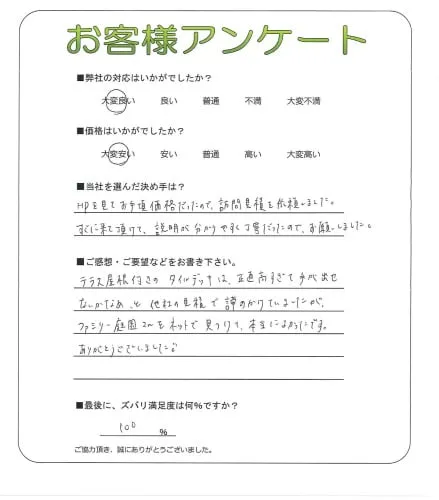 お客様アンケート
■弊社の対応はいかがでしたか？
大変良い 良い 普通 不満 大変不満
■価格はいかがでしたか？
大変安い 安い 普通 高い 大変高い
■当社を選んだ決め手は？
HPを見てお手頃価格だったので、訪問見積を依頼しました。
すぐに来て頂けて、説明が分かりやすく丁寧だったので、お願いしました。
■ご感想・ご要望などをお書き下さい。
テラス屋根付きのタイルデッキは、正直高すぎて手が出せ
ないかなぁ、と他社の見積で諦めかけていましたが、
ファミリー庭園さんをネットで見つけて、本当によかったです。
ありがとうございました。
■最後に、ズバリ満足度は何%ですか？
100 %
ご協力頂き、誠にありがとうございました。